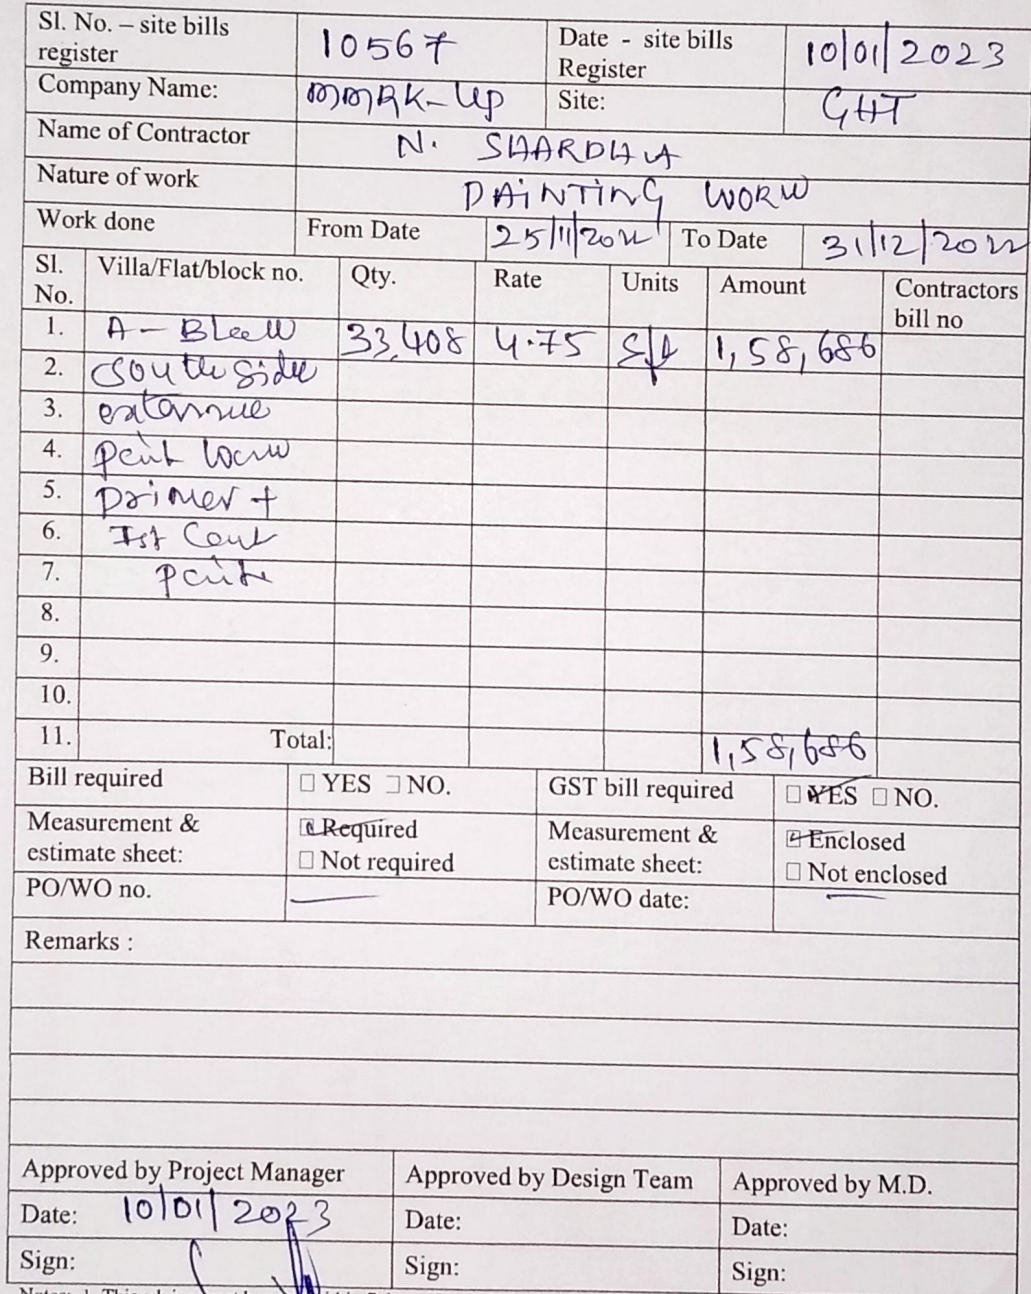 Sl. No. – site bills register 10567 Date - site bills Register 10/01/2023
Company Name: MMRK-Up Site: GHT
Name of Contractor N. SHARDHA
Nature of work PAINTING WORK
Work done From Date 25/11/2022 To Date 31/12/2022
Sl. No. Villa/Flat/block no. Qty. Rate Units Amount Contractors bill no
1. A - Block 33,408 4.75 sft 1,58,686
2. South side
3.
4. paint work
5. primer +
6. Ist Coat
7. paint
8.
9.
10.
11. Total: 1,58,686
Bill required ☐ YES ☐ NO. GST bill required ☐ YES ☐ NO.
Measurement & estimate sheet: ☑ Required ☐ Not required Measurement & estimate sheet: ☑ Enclosed ☐ Not enclosed
PO/WO no. — PO/WO date: —
Remarks :
Approved by Project Manager Approved by Design Team Approved by M.D.
Date: 10/01/2023 Date: Date:
Sign: Sign: Sign: